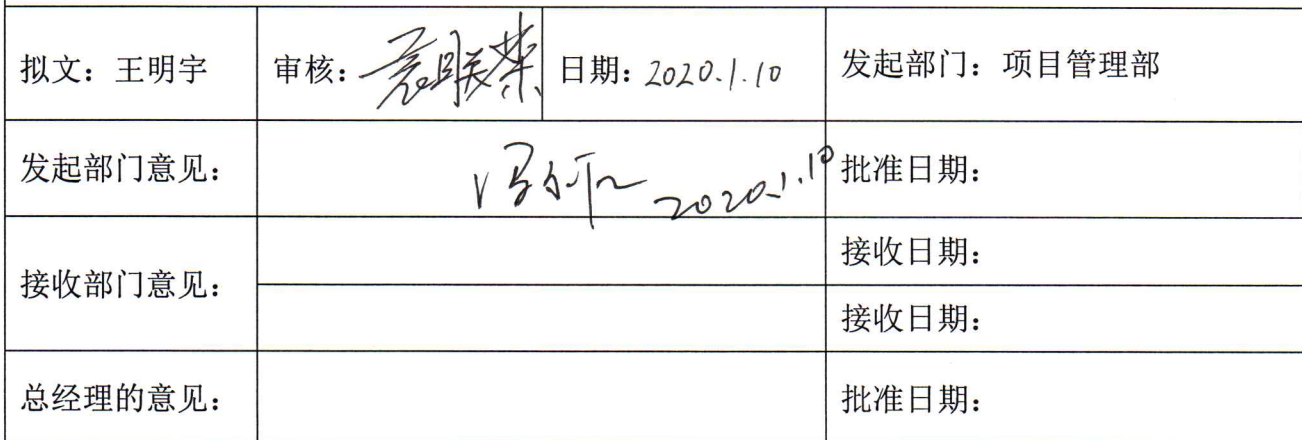 拟文：王明宇 审核：袁联荣 日期：2020.1.10 发起部门：项目管理部
发起部门意见： 2020.1.10 批准日期：
接收部门意见： 接收日期：
接收日期：
总经理的意见： 批准日期：